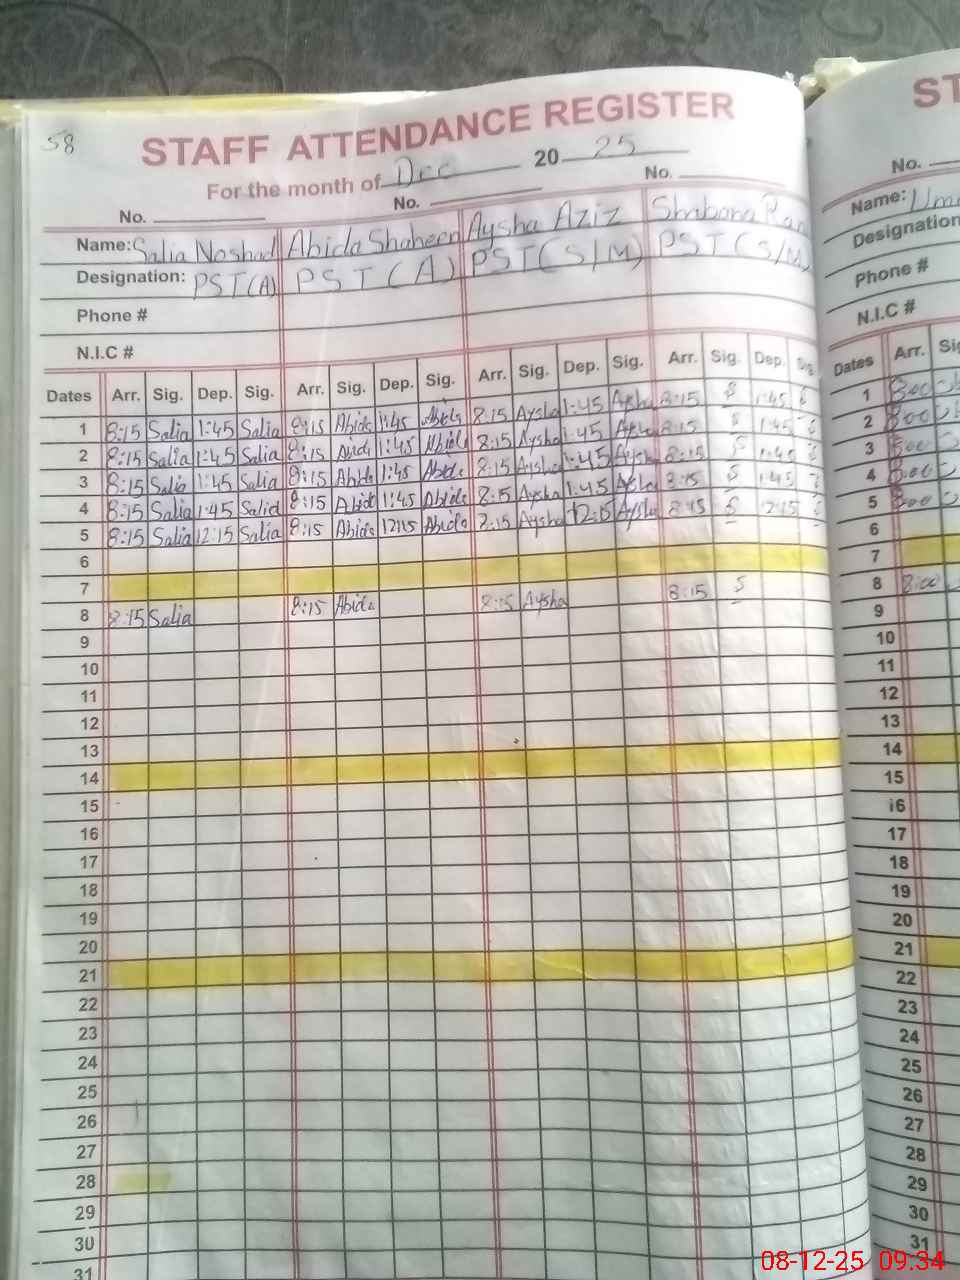 58
STAFF ATTENDANCE REGISTER
For the month of Dec 20 25
No. No. No.
Name: Salia Noshad Abida Shaheen Aysha Aziz Shabana
Designation: PST(A) PST(A) PST(S/M) PST(S/M)
Phone #
N.I.C #
Dates Arr. Sig. Dep. Sig. Arr. Sig. Dep. Sig. Arr. Sig. Dep. Sig. Arr. Sig. Dep. Sig.
1 8:15 Salia 1:45 Salia 8:15 Abida 1:45 Abida 8:15 Aysha 1:45 Aysha 8:15 S 1:45 S
2 8:15 Salia 1:45 Salia 8:15 Abida 1:45 Abida 8:15 Aysha 1:45 Aysha 8:15 S 1:45 S
3 8:15 Salia 1:45 Salia 8:15 Abida 1:45 Abida 8:15 Aysha 1:45 Aysha 8:15 S 1:45 S
4 8:15 Salia 1:45 Salia 8:15 Abida 1:45 Abida 8:15 Aysha 1:45 Aysha 8:15 S 1:45 S
5 8:15 Salia 12:15 Salia 8:15 Abida 12:15 Abida 8:15 Aysha 12:15 Aysha S 12:15 S
6
7
8 8:15 Salia 8:15 Abida 8:15 Aysha 8:15 S
9
10
11
12
13
14
15
16
17
18
19
20
21
22
23
24
25
26
27
28
29
30
31
ST
No.
Name:
Designation
Phone #
N.I.C #
Dates Arr.
1 8:00
2 8:00
3 8:00
4 8:00
5 8:00
6
7
8 8:00
9
10
11
12
13
14
15
16
17
18
19
20
21
22
23
24
25
26
27
28
29
30
31
08-12-25 09:34